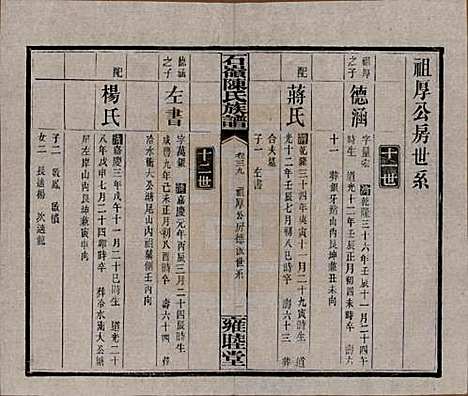 祖厚公房世系
十一世
祖厚之子
德涵
字 清乾隆三十六年壬 十一月二十四午
時生 道光十二年壬辰正月初四 時卒 壽六
十一 葬銀牙 山內艮坤兼丑未向
配
蔣氏
清乾隆三十四年 寅十一月二十九寅時生 道
光十二年壬辰七月初八巳時卒 壽六十三
合夫墓
子一 左書
石嶺陳氏族譜
卷三九 祖厚公房德涵世系
雍睦堂
十二世
德涵之子
左書
字萬 清嘉慶元年丙辰三月二十四辰時生
咸豐九年己未正月初八酉時卒 壽六十四 葬
冷水 大公塘尾山內 側壬丙向
配
楊氏
清嘉慶三年戊午十一月二十巳時生 道光二十
八年戊申七月二十四 時卒 葬冷水 大公塘
尾左岸山內艮坤兼寅申向
子二 啟鳳 啟
女二 長適楊 次適龍